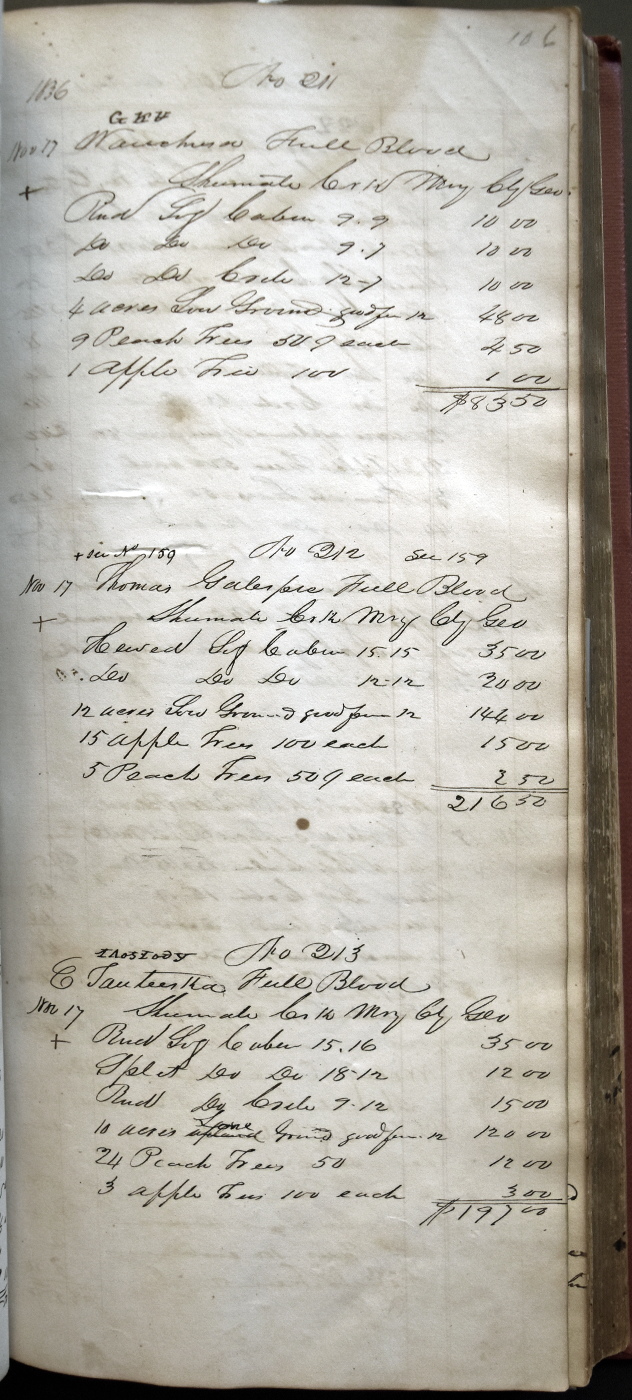 106
1836 No 211
Nov 17 Full Blood
+ Shumate Crk Mry Cty Geo.
Rnd Log Cabin 9.9 10 00
Do Do Do 9.7 10 00
Do Do Crib 12-7 10 00
4 acres Low Ground good fence 12 48 00
9 Peach Trees 50 ¢ each 4 50
1 Apple Tree 100 1 00
$83 50
+ see No 159 No 212 See 159
Nov 17 Thomas Galespie Full Blood
+ Shumate Crk Mry Cty Geo
Hewed Log Cabin 15.15 35 00
Do Do Do 12-12 20 00
12 acres Low Ground good fence 12 144 00
15 Apple Trees 100 each 15 00
5 Peach Trees 50 ¢ each 2 50
216 50
No 213
Full Blood
Nov 17 Shumate Crk Mry Cty Geo
+ Rnd Log Cabin 15.16 35 00
Split Do Do 18-12 12 00
Rnd Do Crib 9-12 15 00
10 acres Low upland Ground good fence 12 120 00
24 Peach Trees 50 12 00
3 apple Trees 100 each 3 00
$197 00